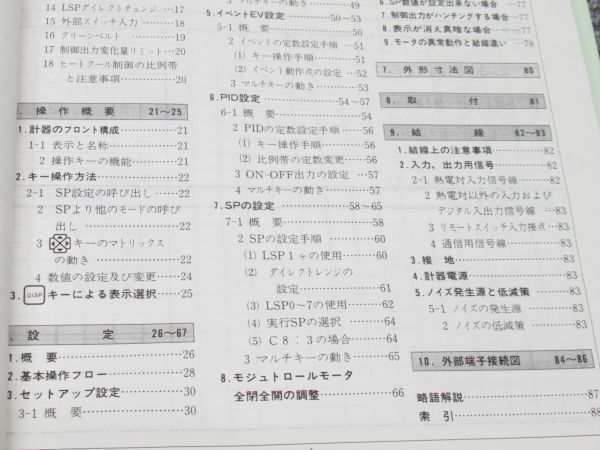 14 LSPダイレクトチェンジ …17
15 外部スイッチ入力 ………18
16 グリーンベルト …………19
17 制御出力変化量リミット…20
18 ヒートクール制御の比例帯
と注意事項…………………20
．操作概要 21～25
1.計器のフロント構成…………21
1-1 表示と名称………………21
2 操作キーの機能…………21
2.キー操作方法…………………22
2-1 SP設定の呼び出し………22
2 SPより他のモードの呼び
出し ………………………22
3 キーのマトリックス
の動き ……………………22
4 数値の設定及び変更……24
3. DISP キーによる表示選択……25
．設定 26～67
1.概要……………………………26
2.基本操作フロー………………28
3.セットアップ設定……………30
3-1 概要………………………30
3 マルチキーの動き…………49
5.イベントEV設定…………50～53
5-1 概要………………………50
2 イベントの定数設定手順 …51
(1) キー操作手順…………51
(2) イベント動作点の設定 …52
3 マルチキーの動き…………53
6.PID設定……………………54～57
6-1 概要………………………54
2 PIDの定数設定手順………56
(1) キー操作手順…………56
(2) 比例帯の定数変更……56
3 ON-OFF出力の設定 ……57
4 マルチキーの動き…………57
7.SPの設定…………………58～65
7-1 概要………………………58
2 SPの設定手順 ……………60
(1) LSP1ヶの使用…………60
(2) ダイレクトレンジの
設定 ……………………61
(3) LSP0～7の使用………62
(4) 実行SPの選択 …………64
(5) C8：3の場合…………64
3 マルチキーの動き…………65
8.モジュトロールモータ
全閉全開の調整………………66
6.SP数値が設定出来ない場合 …77
7.制御出力がハンチングする場合…77
8.表示が消え真暗な場合 ………77
9.モータの異常動作と結線違い …78
7．外形寸法図 80
8．取付 81
9．結線 82～83
1.結線上の注意事項……………82
2.入力，出力用信号……………82
2-1 熱電対入力信号線…………82
2 熱電対以外の入力および
デジタル入出力信号線 …83
3 リモートスイッチ入力接点…83
4 通信用信号線………………83
3.接地……………………………83
4.計器電源………………………83
5.ノイズ発生源と低減策 ………83
5-1 ノイズの発生源 …………83
2 ノイズの低減策 …………83
10．外部端子接続図 84～86
略語解説…………………………87
索引………………………………88